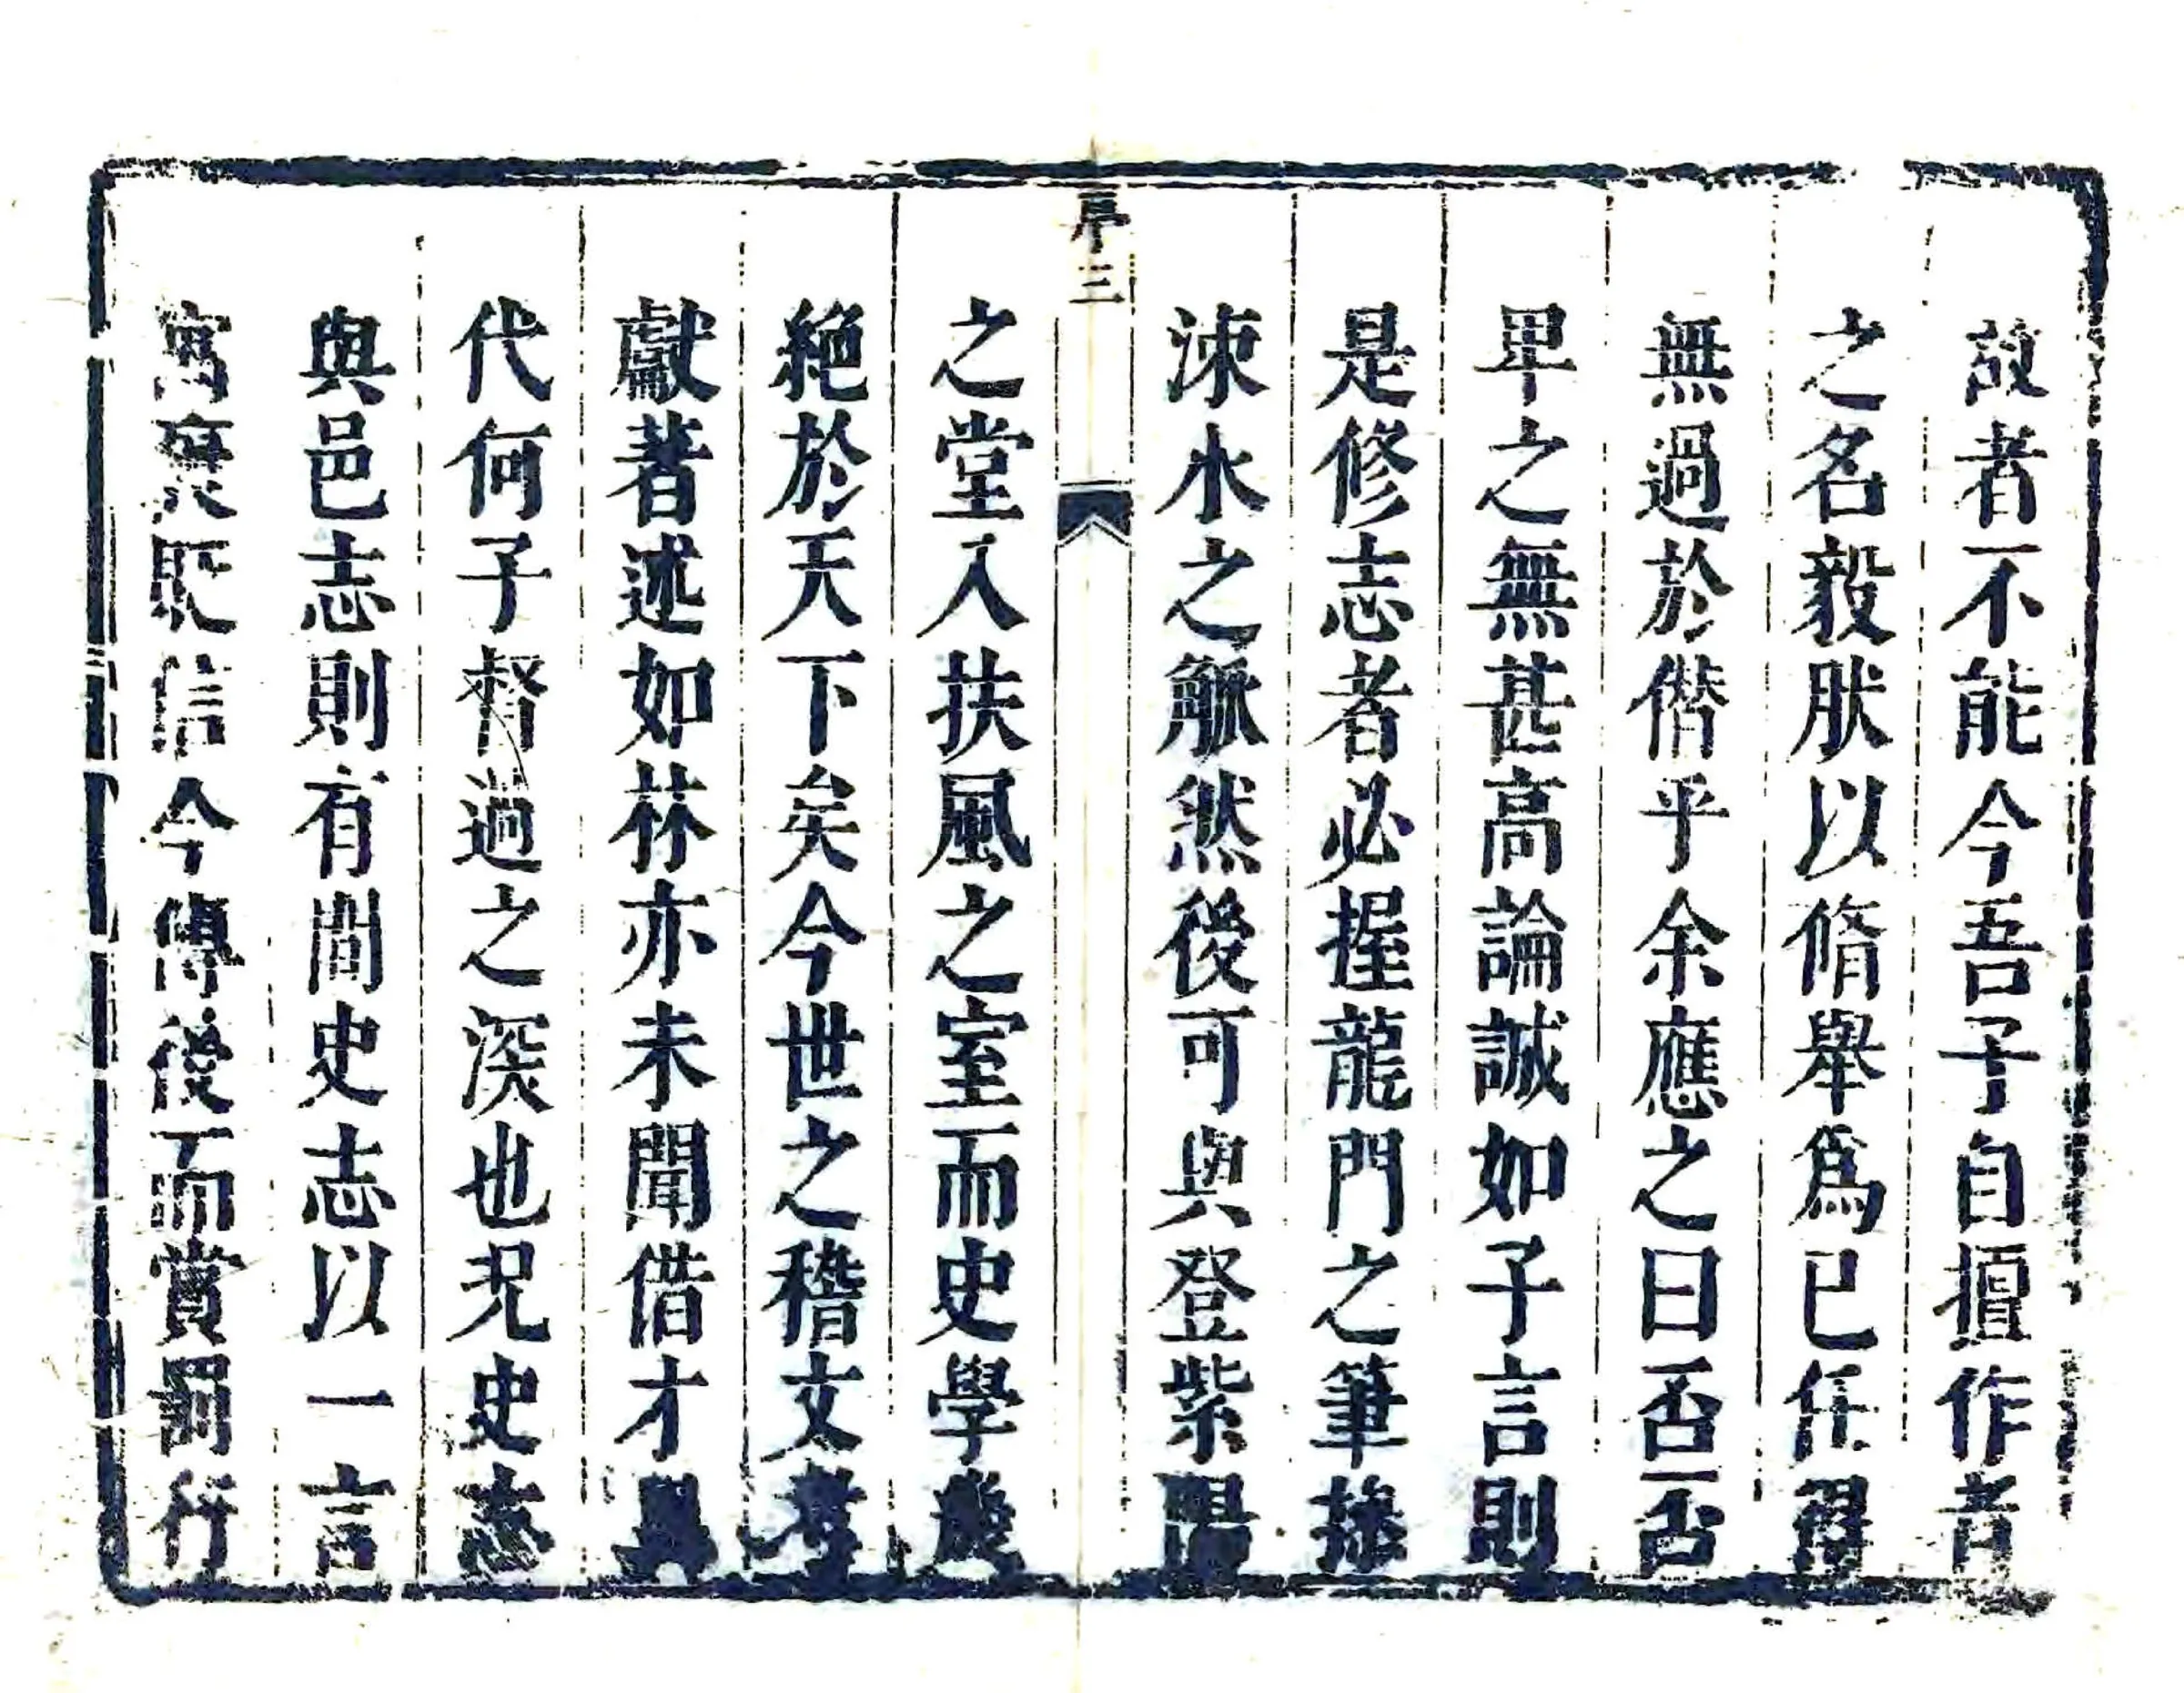 故者不能今吾子自擅作者
之名毅肰以脩舉爲已任
無過於僣乎余應之曰否否
卑之無甚高論誠如子言則
是修志者必握龍門之筆操
涑水之觚然後可與登紫陽
序三
之堂入扶風之室而史學幾
絶於天下矣今世之稽文考
獻著述如林亦未聞借才異
代何子督過之深也況史志
與邑志則有間史志以一言
寓褒貶信今傳後而賞罰行